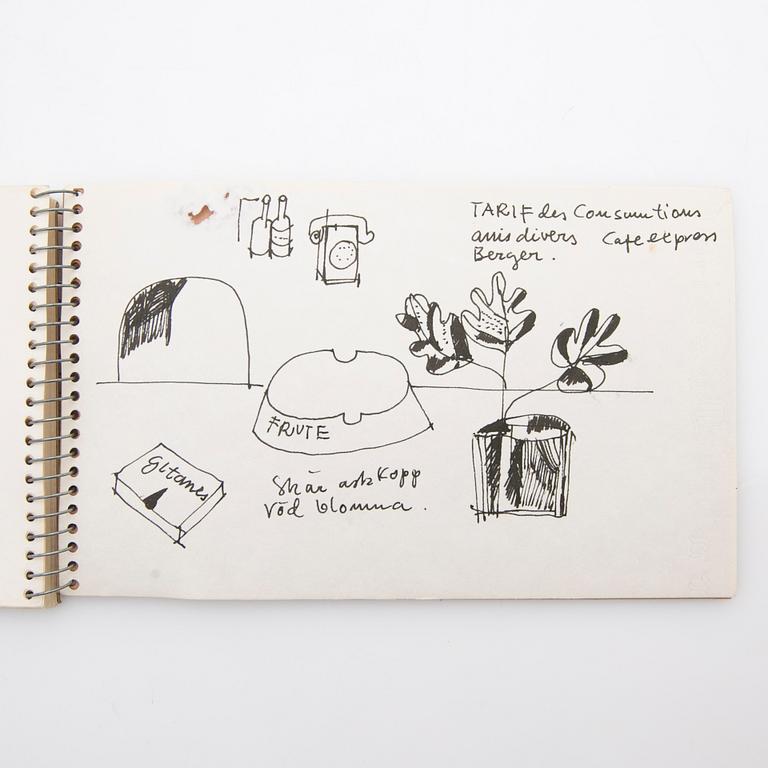 TARIF des Consumtions
anis divers Cafe express
Berger.
FRUTE
Gitanes
Skär askkopp
röd blomma.